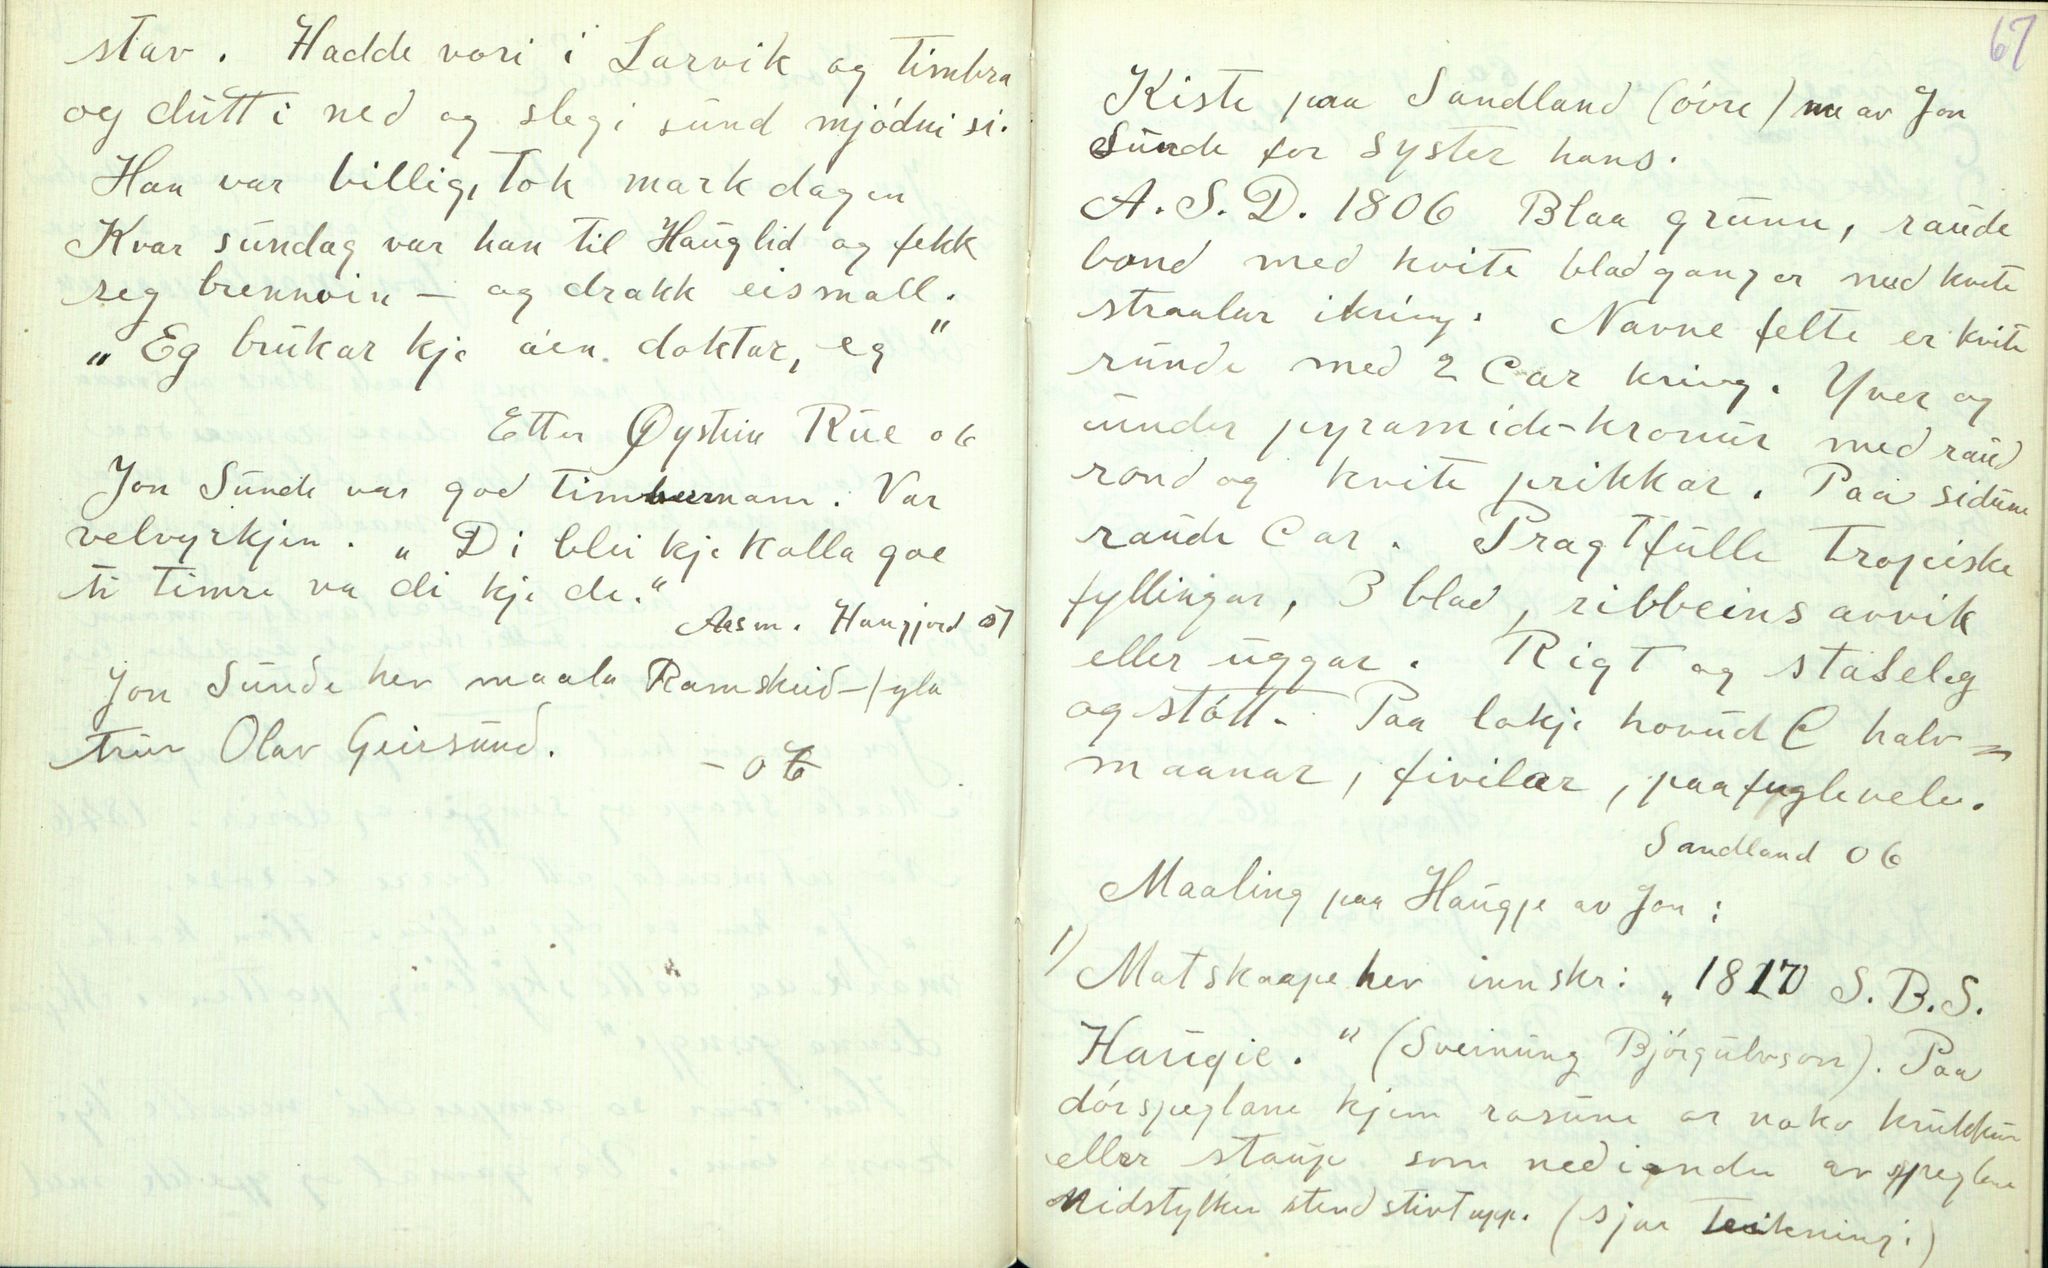 stav. Hadde vori i Larvik og timbra
og dútt i ned og slegi sund mjódni si.
Han var billig, tok mark dagen
Kvar sundag var han til Hauglid og fekk
seg brennvin – og drakk eismall.
„Eg brukar kje áen doktar, eg"
Etter Øystein Rue 06
Jon Sunde var god timbermann. Var
velvyrkjen. „Di blei kje kalla goe
ti timre va di kje de."
Aasm. Haugjord 07
Jon Sunde hev maala Ramskeid-
trur Olav Geirsund.
– 06
67
Kiste paa Sandland (óvre) av Jon
Sunde for syster hans.
A. S. D. 1806 Blaa grunn, raude
bond med kvite bladganger med kvite
straalar ikring. Navne felte er kvite
runde med 2 C ar kring. Yver og
under pyramide-kronur med raud
rond og kvite prikkar. Paa sidune
raude C ar. Pragtfulle tropiske
fyllingar, 3 blad, ribbeins avvik
eller uggar. Rigt og staseleg
og stótt. Paa lokje hovud C halv=
maanar, fivilar, paafuglvele.
Sandland 06
Maaling paa Haugje av Jon:
1) Matskaape hev innskr: „1817 S. B. S.
Haugie." (Sveinung Bjórgulvson). Paa
dórspeglane kjem rosune or noko krukkur
eller staup som nedi enden av speglane
Midstykker stend stivt upp. (Sjaa Teikning:)